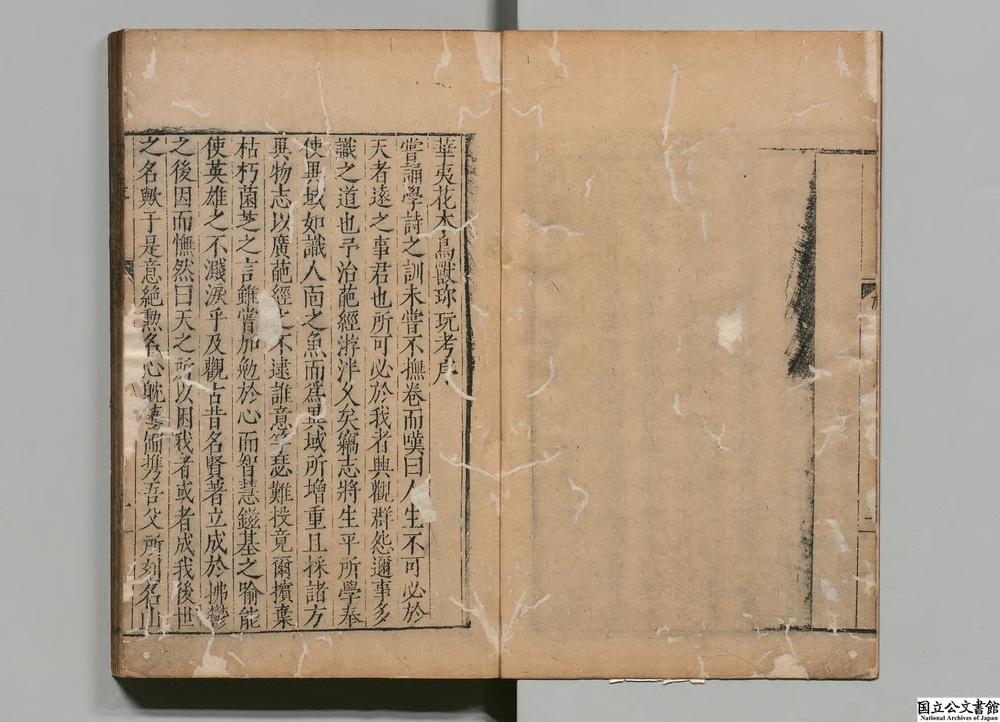 華夷花木鳥獸珍玩考序
嘗誦學詩之訓未嘗不撫卷而嘆曰人生不可必於
天者遠之事君也所可必於我者興觀群怨邇事多
識之道也予治葩經游泮久矣竊志將生平所學奉
使異域如識人面之魚而爲異域所增重且採諸方
異物志以廣葩經之不逮誰意竽瑟難投竟爾擯棄
枯朽菌芝之言雖嘗加勉於心而智慧鎡基之喻能
使英雄之不濺淚乎及觀古昔名賢著立成於拂鬱
之後因而憮然曰天之所以困我者或者成我後世
之名歟于是意絶勲名心耽 携吾父所刻名山
国立公文書館
National Archives of Japan